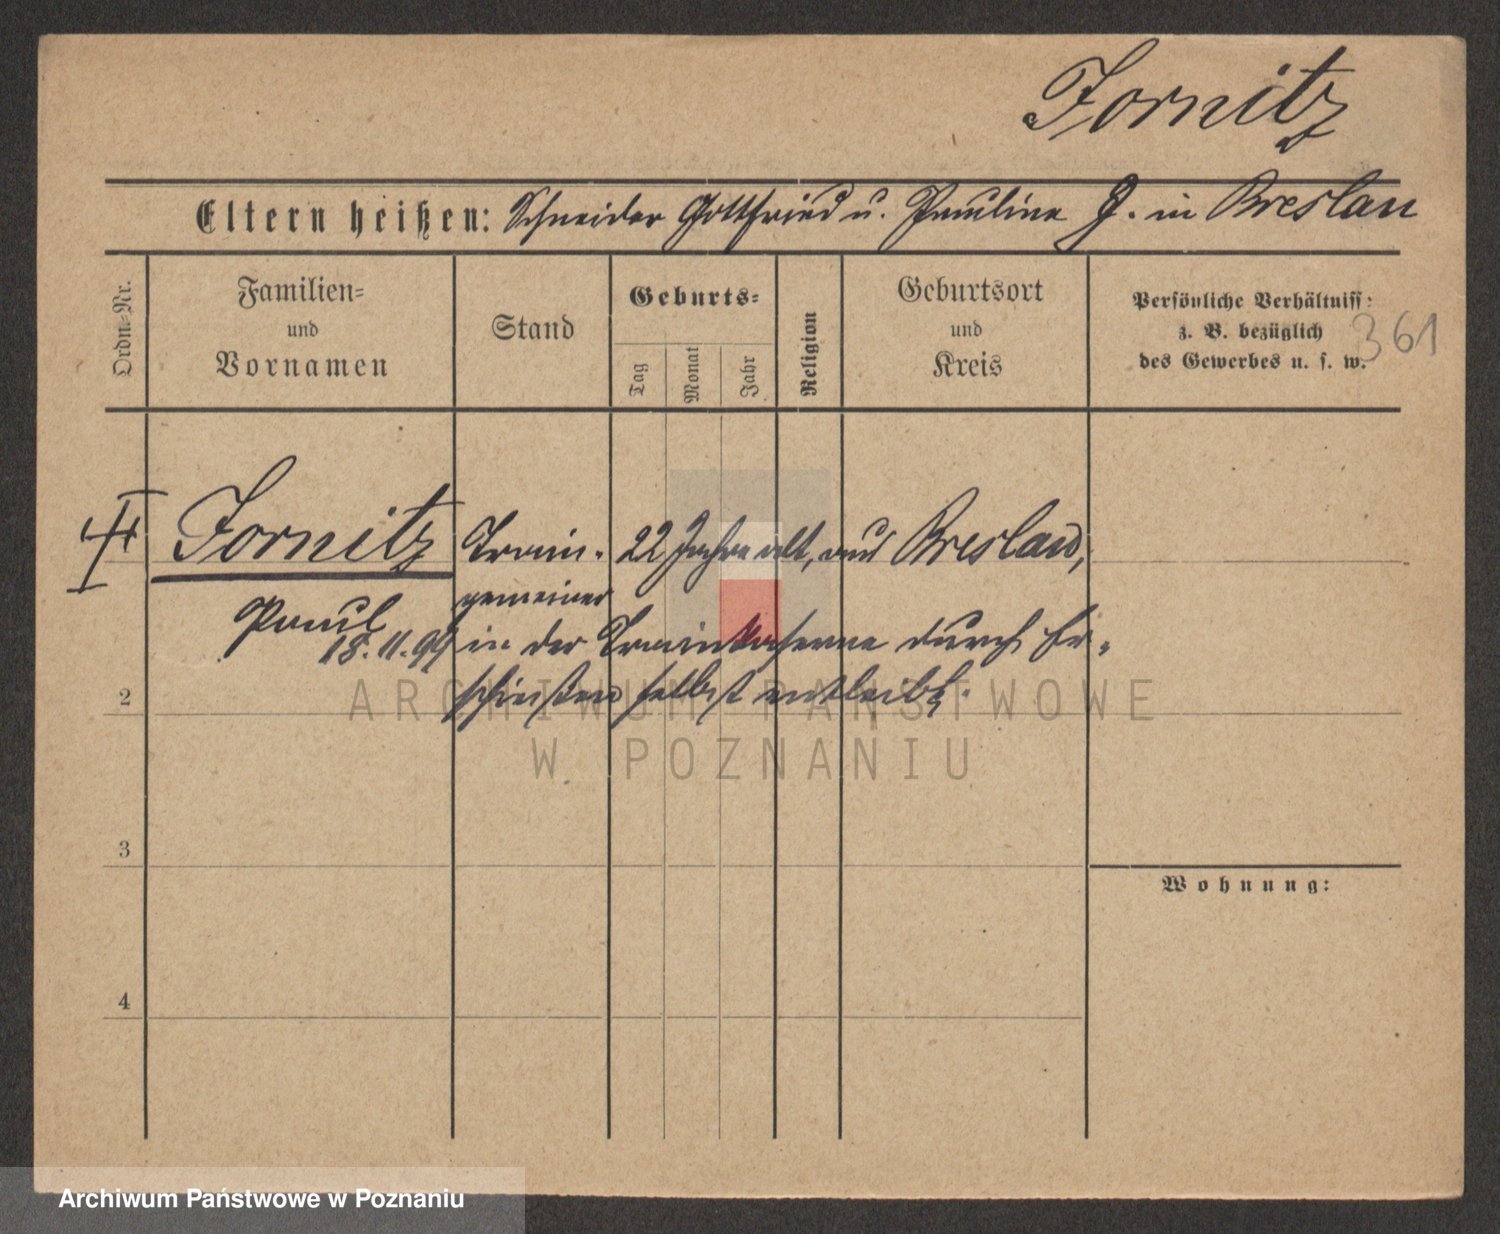 Jornitz
Eltern heißen: Schneider Gottfried u. Pauline J. in Breslau
Ordn=Nr.
Familien=
und
Vornamen
Stand
Geburts=
Tag
Monat
Jahr
Religion
Geburtsort
und
Kreis
Persönliche Verhältniss:
z. B. bezüglich
des Gewerbes u. s. w.
361
Jornitz Train- 22 Jahre alt, aus Breslau,
gemeiner
Paul
18.11.94 in der Trainkaserne durch Er-
schießen selbst entleibt.
2
3
4
Wohnung:
ARCHIWUM PAŃSTWOWE
W POZNANIU
Archiwum Państwowe w Poznaniu